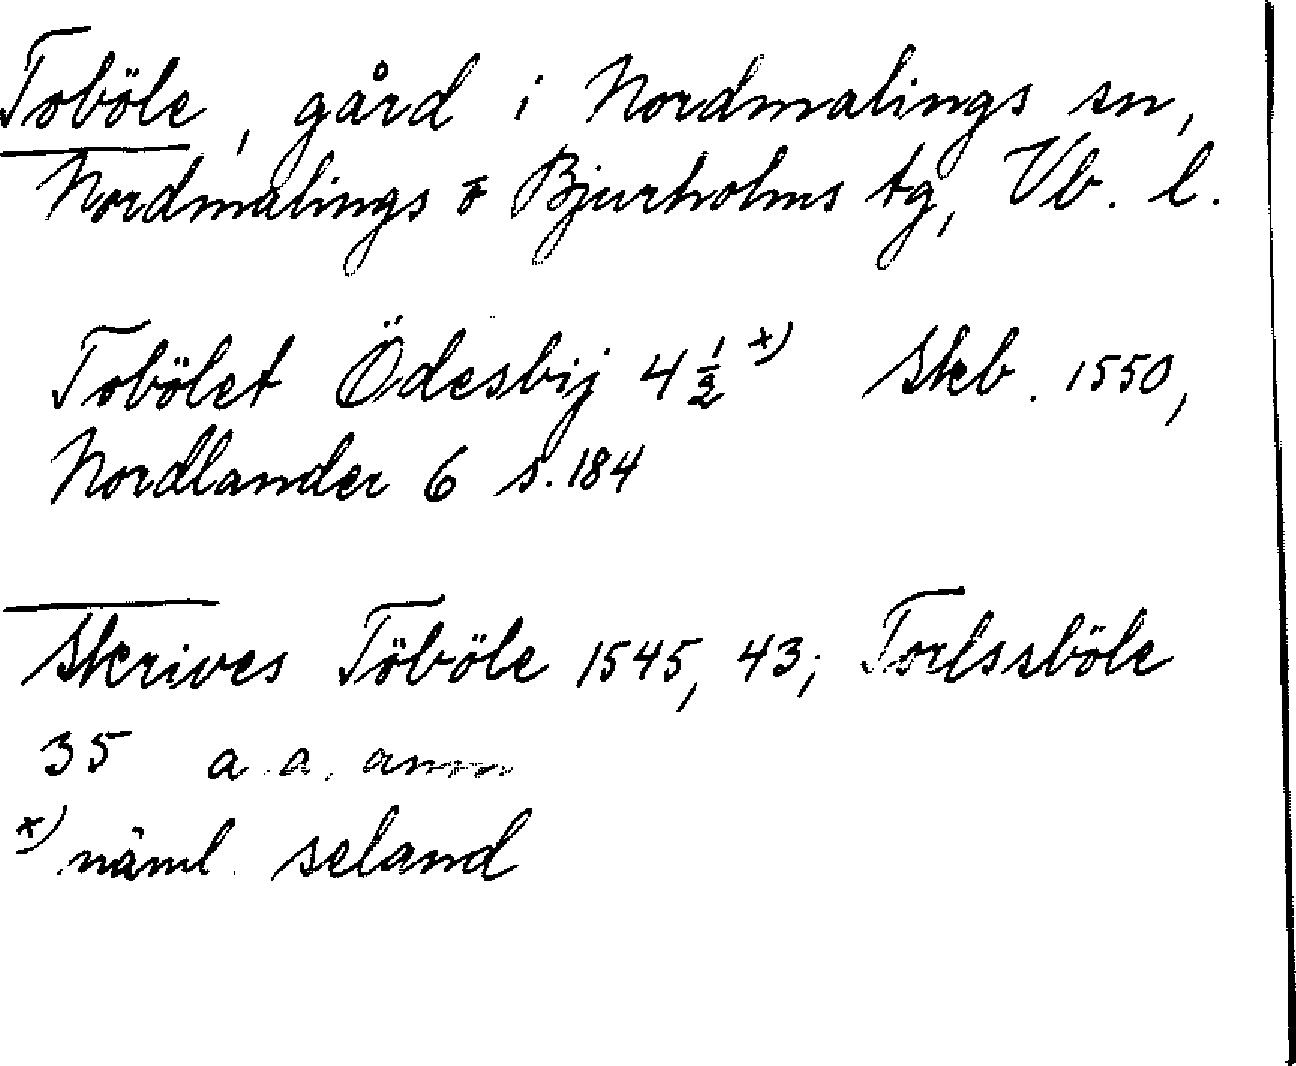 Toböle, gård i Nordmalings sn,
Nordmalings o Bjurholms tg, Vb. l.
Tobölet Ödesbij 4 1/2 x) Skb. 1550,
Nordlander 6 s. 184
Skrives Töböle 1545, 43; Torlssböle
35 a.a. anm
x) näml. seland